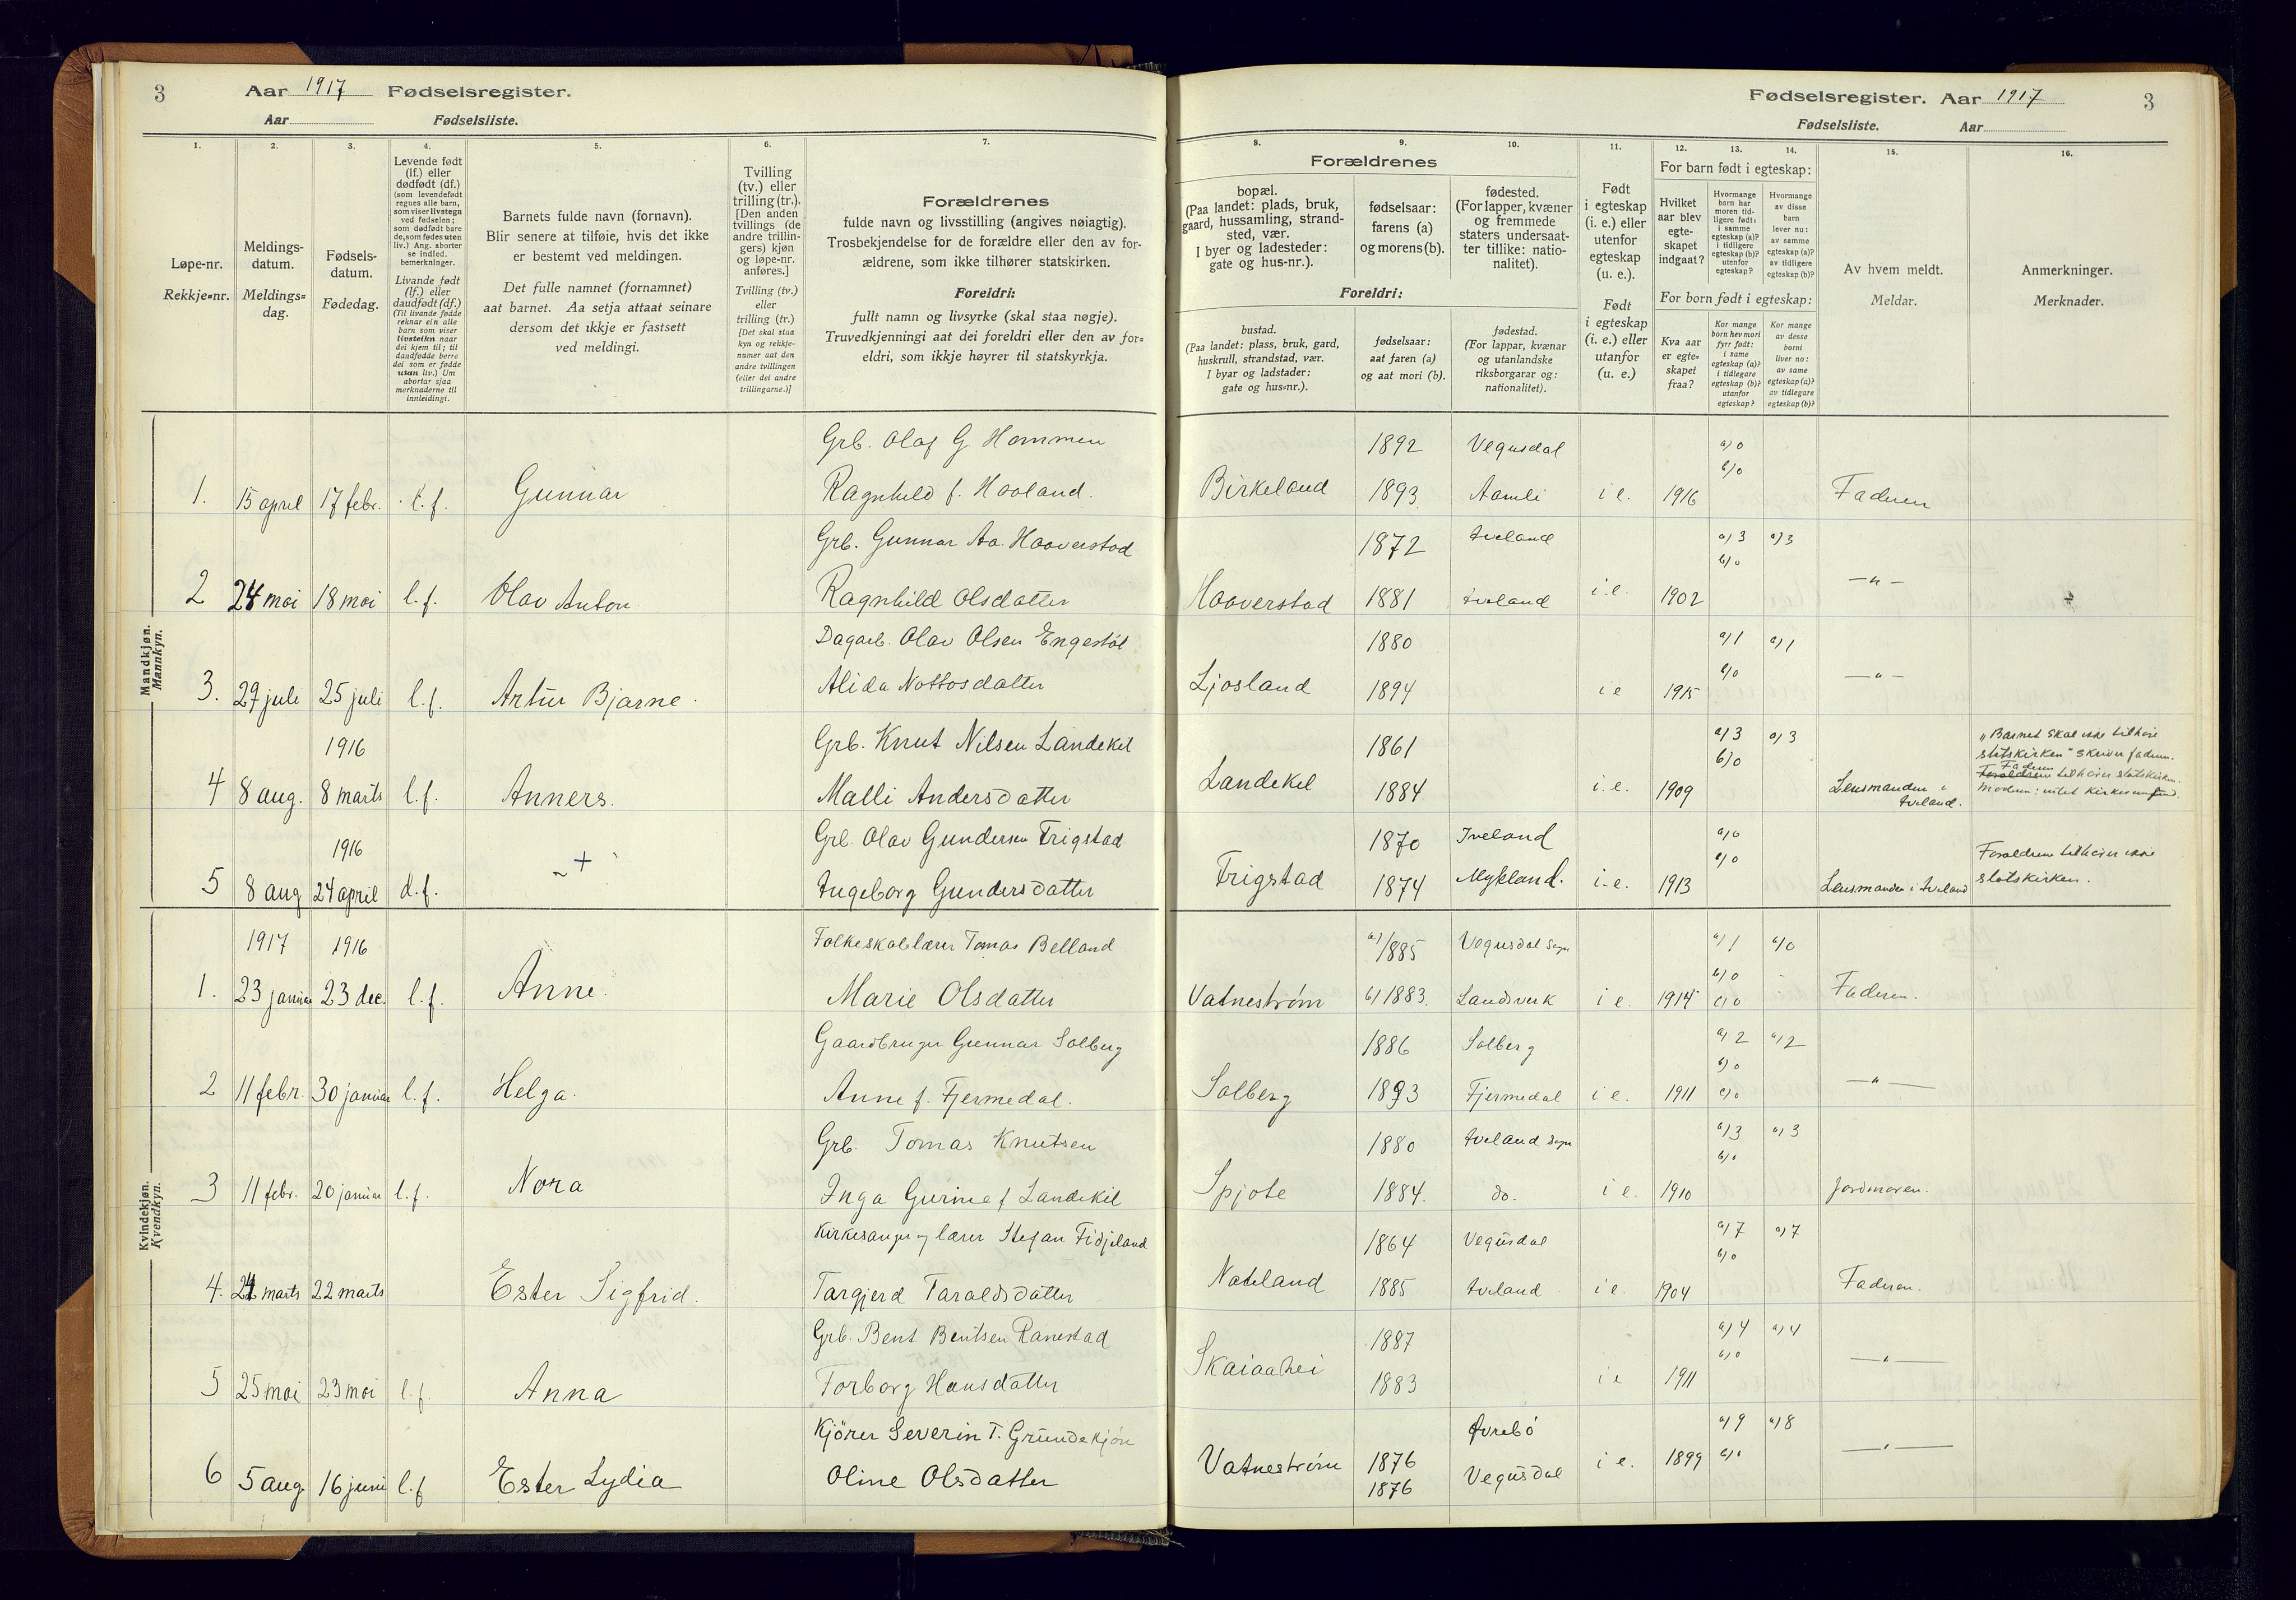 3
Aar 1917 Fødselsregister.
Aar Fødselsliste.
1.
2.
3.
4.
5.
6.
7.
Løpe-nr.
Rekkje-nr.
Meldings-
datum.
Meldings-
dag.
Fødsels-
datum.
Fødedag.
Levende født
(lf.) eller
dødfødt (df.)
(som levendefødt
regnes alle barn,
som viser livstegn
ved fødselen;
som dødfødt bare
de, som fødes uten
liv.) Ang. aborter
se indled.
bemerkninger.
Livande født
(lf.) eller
daudfødt (df.)
(Til livande fødde
reknar ein alle
barn som viser
livsteikn naar
dei kjem til; til
daudfødde berre
dei som er fødde
utan liv.) Um
abortar sjaa
merknaderne til
innleidingi.
Barnets fulde navn (fornavn).
Blir senere at tilføie, hvis det ikke
er bestemt ved meldingen.
Det fulle namnet (fornamnet)
aat barnet. Aa setja attaat seinare
dersom det ikkje er fastsett
ved meldingi.
Tvilling
(tv.) eller
trilling (tr.).
[Den anden
tvillings (de
andre trillin-
gers) kjøn
og løpe-nr.
anføres.]
Tvilling (tv.)
eller
trilling (tr.)
[Det skal staa
kyn og rekkje-
numer aat den
andre tvillingen
(eller dei andre
trillingarne.)]
Forældrenes
fulde navn og livsstilling (angives nøiagtig).
Trosbekjendelse for de forældre eller den av for-
ældrene, som ikke tilhører statskirken.
Foreldri:
fullt namn og livsyrke (skal staa nøgje).
Truvedkjenningi aat dei foreldri eller den av for-
eldri, som ikkje høyrer til statskyrkja.
Mandkjøn.
Mannkyn.
Grb. Olaf G. Hommen
1. 15 april 17 febr. l.f. Gunnar Ragnhild f. Haaland.
Grb. Gunnar Aa. Haaverstad
2 24 mai 18 mai l.f. Olav Anton Ragnhild Olsdatter
Dagarb. Olav Olsen Engestøl
3. 27 juli 25 juli l.f. Artur Bjarne. Alida Nottosdatter
1916 Grb. Knut Nilsen Landekil
4 8 aug. 8 marts l.f. Anners. Malli Andersdatter
1916 Grb. Olav Gundersen Frigstad
5 8 aug 24 april d.f. ~ + Ingeborg Gundersdatter
Kvindekjøn.
Kvendkyn.
1917 1916 Folkeskolelærer Tomas Belland
1. 23 januar 23 dec. l.f. Anne. Marie Olsdatter
Gaardbruger Gunnar Solberg
2 11 febr. 30 januar l.f. Helga. Anne f. Fjermedal.
Grb. Tomas Knutsen
3 11 febr. 20 januar l.f. Nora Inga Gurine f Landekil
Kirkesanger og lærer Stefan Fidjeland
4. 24 marts 22 marts Ester Sigfrid. Targjerd Taraldsdatter
Grb. Bent Bentsen Ranestad
5 25 mai 23 mai l.f. Anna Torborg Hansdatter
Kjörer Severin T. Grundekjøn
6 5 aug. 16 juni l.f Ester Lydia Oline Olsdatter
Fødselsregister. Aar 1917 3
Fødselsliste. Aar
8.
9.
10.
11.
12.
13.
14.
15.
16.
Forældrenes
bopæl.
(Paa landet: plads, bruk,
gaard, hussamling, strand-
sted, vær.
I byer og ladesteder:
gate og hus-nr.).
fødselsaar:
farens (a)
og morens (b).
fødested.
(For lapper, kvæner
og fremmede
staters undersaat-
ter tillike: natio-
nalitet).
Foreldri:
bustad.
(Paa landet: plass, bruk, gard,
huskrull, strandstad, vær.
I byar og ladstader:
gate og hus-nr.).
fødselsaar:
aat faren (a)
og aat mori (b).
fødestad.
(For lappar, kvænar
og utanlandske
riksborgarar og:
nationalitet).
Født
i egteskap
(i. e.) eller
utenfor
egteskap
(u. e.).
Født
i egteskap
(i. e.) eller
utanfor
(u. e.)
For barn født i egteskap:
Hvilket
aar blev
egte-
skapet
indgaat?
Hvormange
barn har
moren tid-
ligere født:
i samme
egteskap (a)?
i tidligere
egteskap (b)?
utenfor
egteskap?
Hvormange
av disse
barn
lever nu:
av samme
egteskap (a)?
av tidligere
egteskap (b)?
For born født i egteskap:
Kva aar
er egte-
skapet
fraa?
Kor mange
born hev mori
fyrr født:
i same
egteskap (a)?
i tidlegare
egteskap (b)?
utanfor
egteskap?
Kor mange
av desse
borni
liver no:
av same
egteskap (a)?
av tidlegare
egteskap (b)?
Av hvem meldt.
Meldar.
Anmerkninger.
Merknader.
1892 Vegusdal a) 0
b) 0
Birkeland 1893 Aamli i e. 1916 Faderen
1872 Iveland a) 3 a) 3
b) 0
Haaverstad 1881 Iveland i.e. 1902 — " —
1880 a) 1 a) 1
b) 0
Ljosland 1894 i e 1915 — " —
1861 a) 3 a) 3
b) 0
Landekil 1884 i.e. 1909 Lensmanden i Iveland.
"Barnet skal ikke tilhøre
statskirken" skriver faderen.
Faderen
Forældrene tilhører statskirken.
Moderen: intet kirkesamfund.
1870 Iveland a) 0
b) 0
Frigstad 1874 Mykland. i.e. 1913 Lensmanden i Iveland
Forældrene tilhører ikke
statskirken.
a) 1885 Vegusdal Sogn a) 1 a) 0
b) 0
Vatneström b) 1883. Landsverk i e. 1914 c) 0 Faderen.
1886 Solberg a) 2 a) 2
b) 0
Solberg 1893 Fjermedal i e. 1911 c) 0 — " —
1880 Iveland Sogn a) 3 a) 3
b) 0
Spjote 1884. do. i e. 1910 Jordmoren.
1864 Vegusdal a) 7 a) 7
b) 0
Nateland 1885 Iveland i e. 1904 Faderen.
1887 a) 4 a) 4
b) 0
Skaiaahei 1883 i e 1911 — " —
Øvrebö a) 9 a) 8
Vatneström 1876 i e. 1899 — " —
1876 Vegusdal